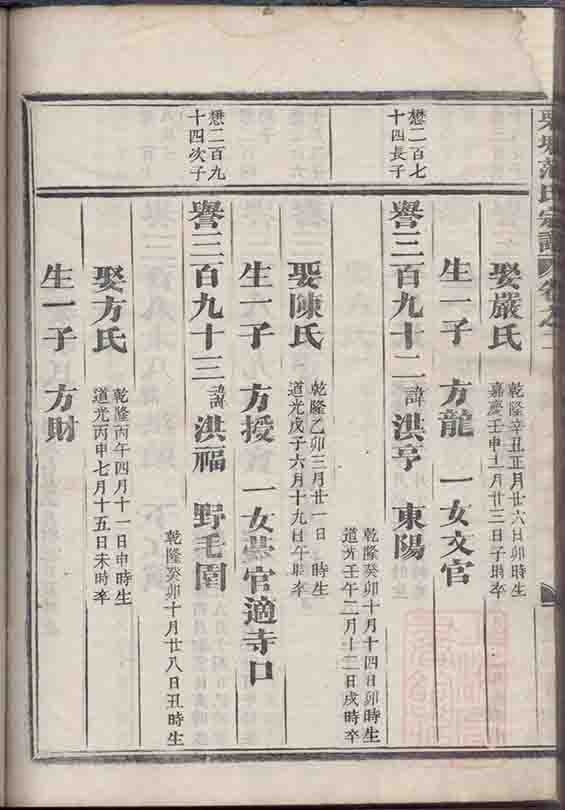 氏宗譜 卷之二
娶嚴氏 乾隆辛丑正月廿六日卯時生
嘉慶壬申十一月廿三日子時卒
生一子 方龍 一女文官
懋二百七
十四長子
譽三百九十二 諱洪亨 東陽
乾隆癸卯十月十四日卯時生
道光壬午二月十二日戌時卒
娶陳氏 乾隆乙卯三月廿一日時生
道光戊子六月十九日午時卒
生一子 方授 一女 官適寺口
懋二百九
十四次子
譽三百九十三 諱洪福 野毛園
乾隆癸卯十月廿八日丑時生
娶方氏 乾隆丙午四月十一日申時生
道光丙申七月十五日未時卒
生一子 方財